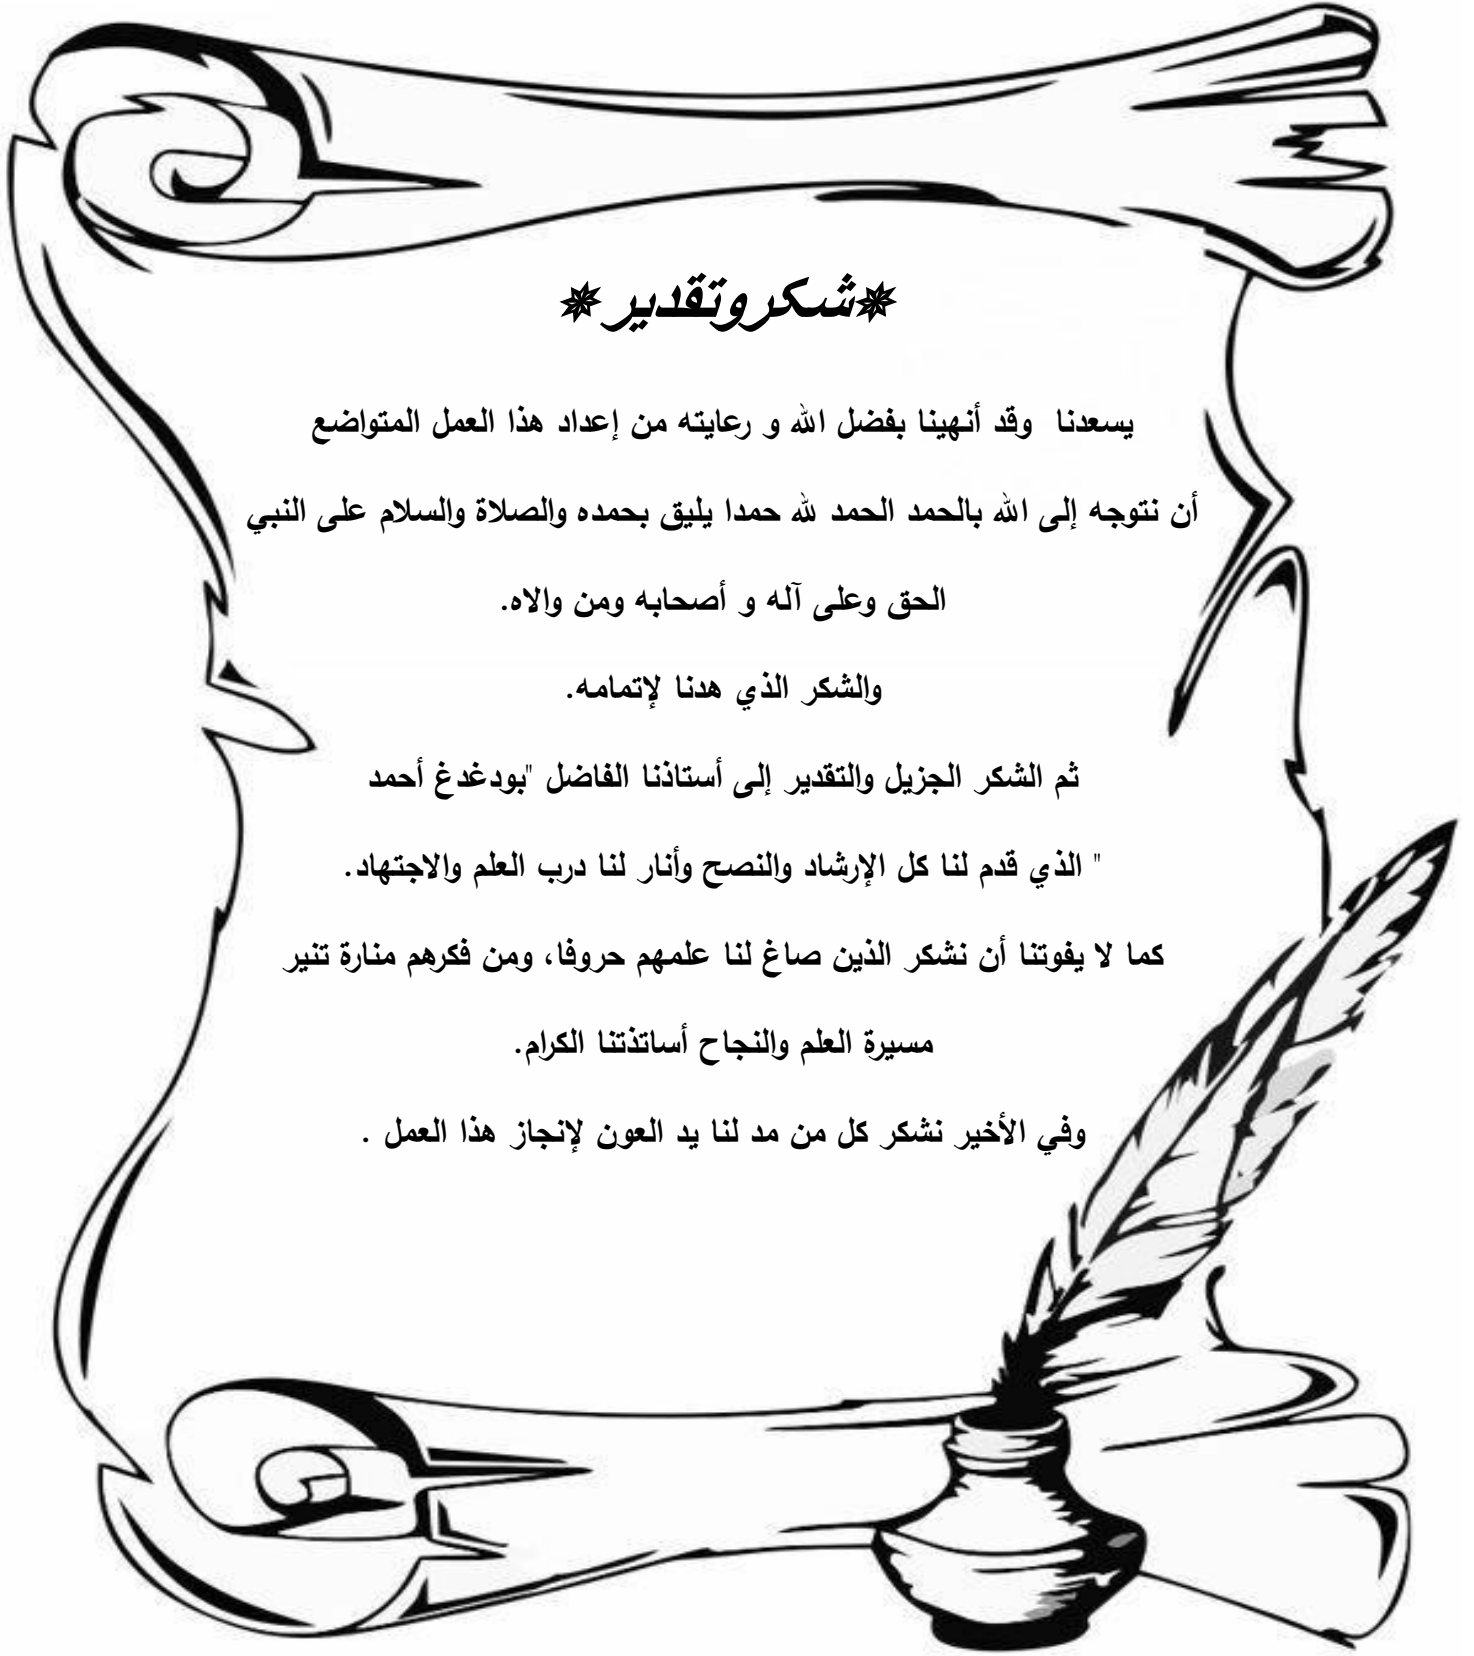 ✵شكروتقدير✵
يسعدنا وقد أنهينا بفضل الله و رعايته من إعداد هذا العمل المتواضع
أن نتوجه إلى الله بالحمد الحمد لله حمدا يليق بحمده والصلاة والسلام على النبي
الحق وعلى آله و أصحابه ومن والاه.
والشكر الذي هدنا لإتمامه.
ثم الشكر الجزيل والتقدير إلى أستاذنا الفاضل "بودغدغ أحمد
" الذي قدم لنا كل الإرشاد والنصح وأنار لنا درب العلم والاجتهاد.
كما لا يفوتنا أن نشكر الذين صاغ لنا علمهم حروفا، ومن فكرهم منارة تنير
مسيرة العلم والنجاح أساتذتنا الكرام.
وفي الأخير نشكر كل من مد لنا يد العون لإنجاز هذا العمل .